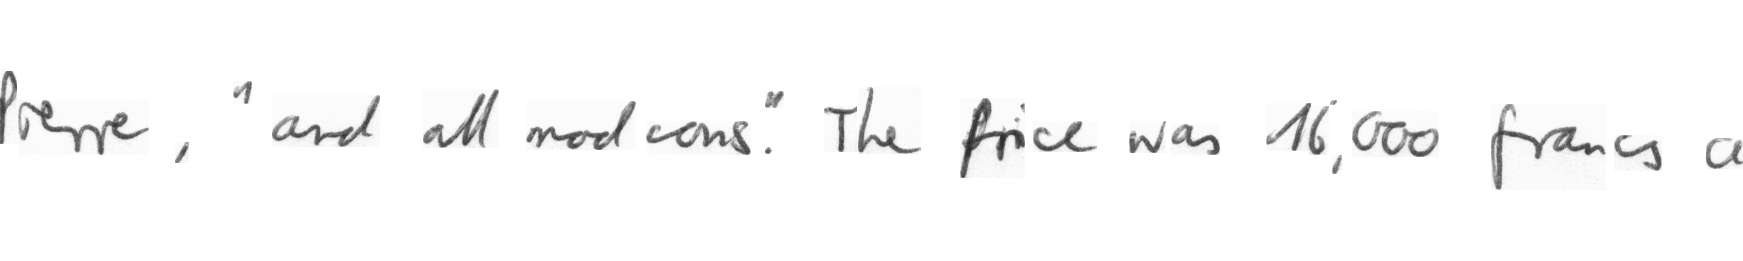 Pierre, "and all mod cons." The price was 16,000 francs a